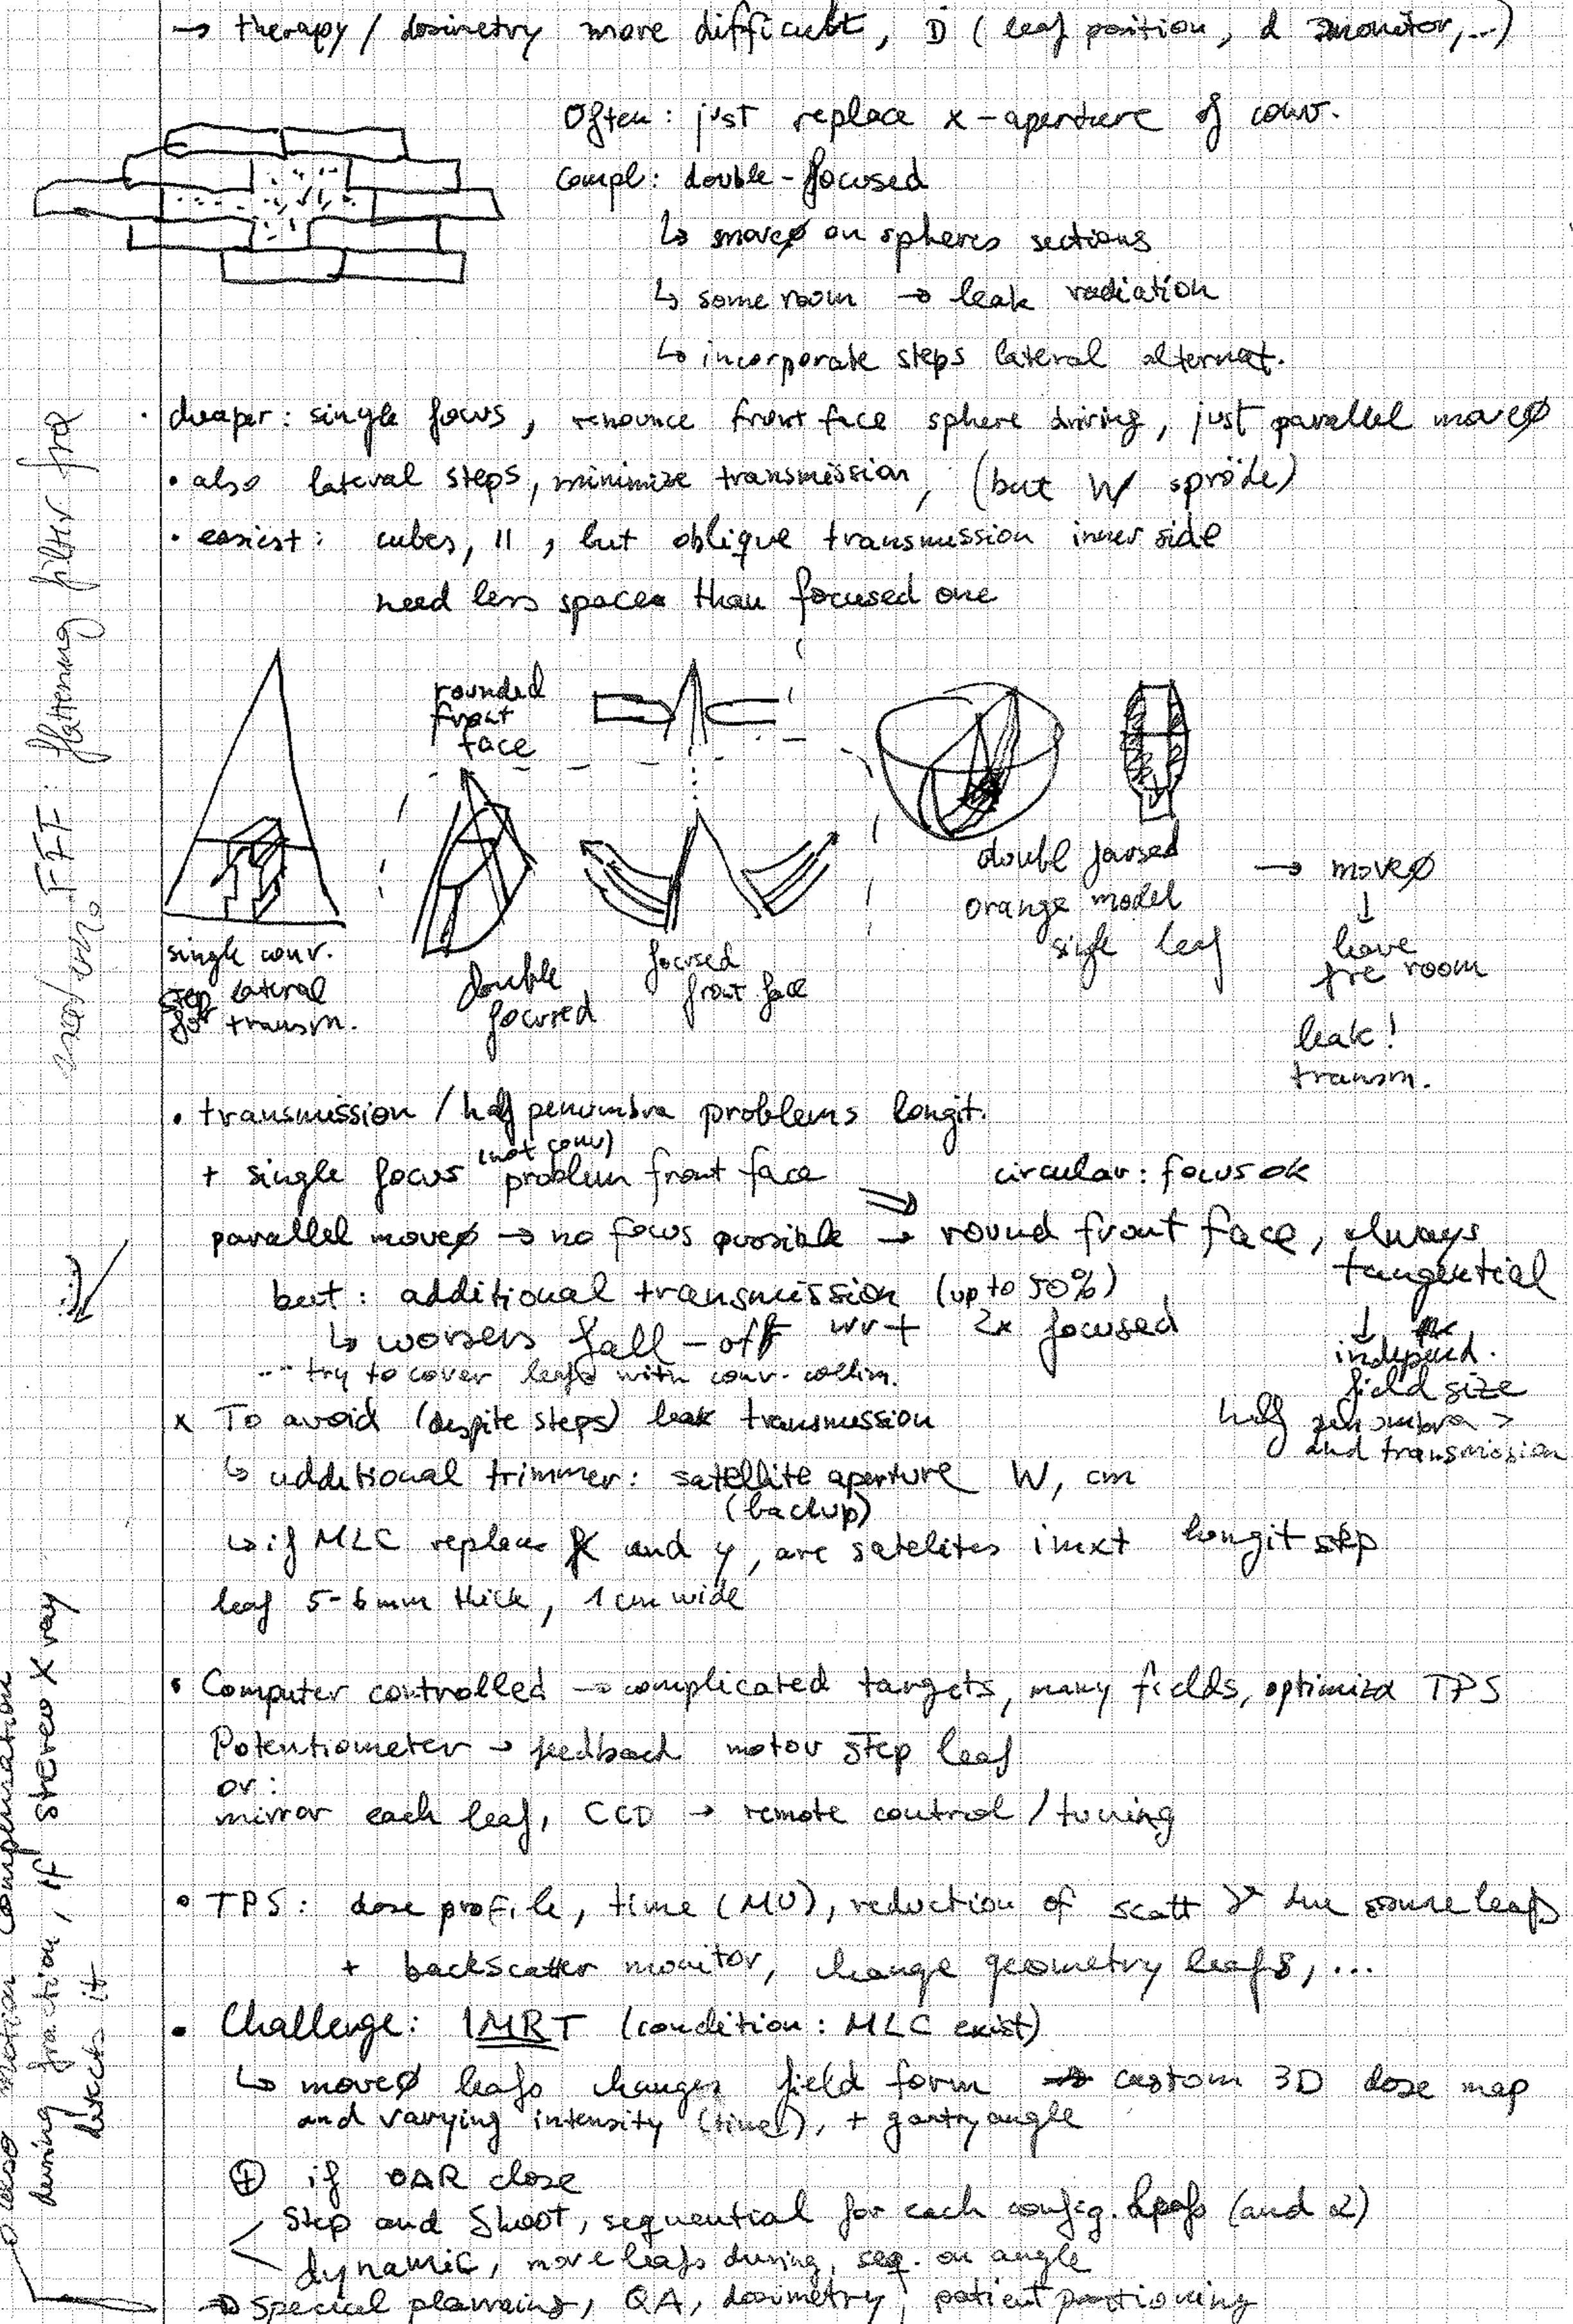 → therapy / dosimetry more difficult, Ḋ (leaf position, d monitor, ...)
Often: just replace x-aperture of conv.
Compl: double-focused
↳ moveø on spheres sections
↳ some room → leak radiation
↳ incorporate steps lateral alternat.
· cheaper: single focus, renounce front face sphere driving, just parallel moveø
• also lateral steps, minimize transmission, (but W spröde)
• easiest: cubes, ||, but oblique transmission inner side
need less space than focused one
rounded
front
face
single conv.
step lateral
for transm.
double
focused
focused
front face
double focused
orange model
single leaf
→ moveø
↓
leave
free room
leak!
transm.
• transmission / half penumbra problems longit.
(not conv)
+ single focus problem front face ⇒ circular: focus ok
parallel moveø → no focus possible → round front face, always
tangential
but: additional transmission (up to 50%)
↳ worsens fall-off wrt 2x focused
↓
independ.
field size
... try to cover leafs with conv. collim.
half penumbra >
and transmission
x To avoid (despite steps) leak transmission
↳ additional trimmer: satellite aperture W, cm
(backup)
↳ if MLC replace X and y, are satelites inxt longit step
leaf 5-6mm thick, 1cm wide
• Computer controlled → complicated targets, many fields, optimized TPS
Potentiometer → feedback motor step leaf
or:
mirror each leaf, CCD → remote control / tuning
• TPS: dose profile, time (MU), reduction of scatt γ due some leafs
+ backscatter monitor, change geometry leafs, ...
• Challenge: IMRT (condition: MLC exist)
↳ moveø leafs changes field form → custom 3D dose map
and varying intensity (time), + gantry angle
⊕ if OAR close
Step and Shoot, sequential for each config. leafs (and α)
dynamic, move leafs during, seq. on angle
→ special planning, QA, dosimetry, patient positioning
FFF: flattening filter free
also motion compensation
during fraction, if stereo X ray
detects it